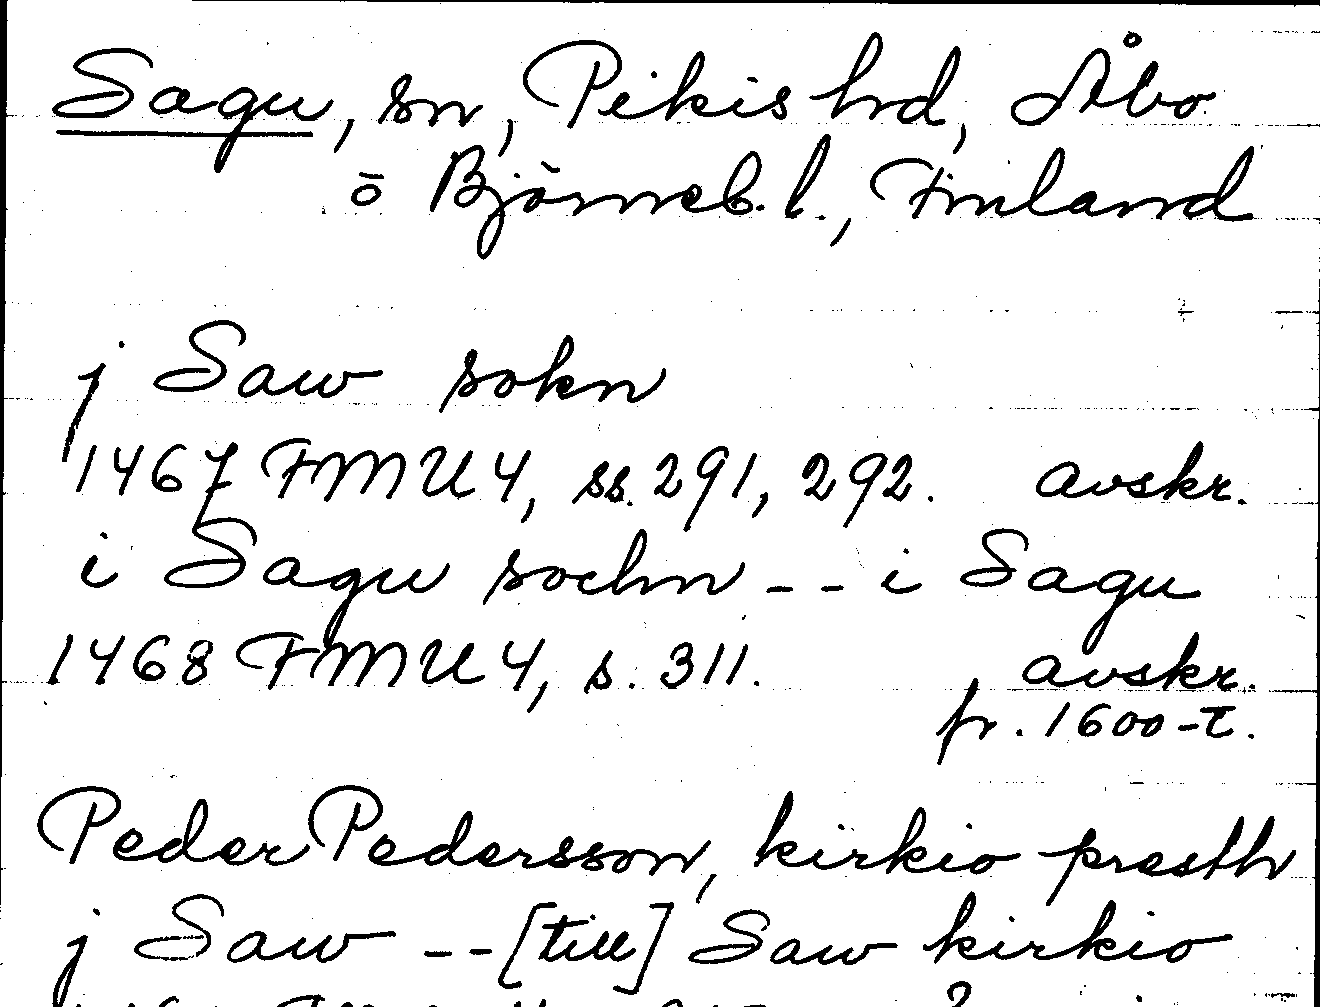 Sagu, sn, Pikis hrd, Åbo
o Björneb. l., Finland
j Saw sokn
1467 FMU 4, ss. 291, 292. avskr.
i Sagu sochn -- i Sagu
1468 FMU 4, s. 311. avskr.
fr. 1600-t.
Peder Pedersson, kirkio presth
j Saw -- [till] Saw kirkio